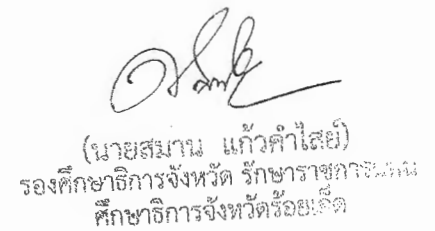 (นายสมาน แก้วคำไสย์)
รองศึกษาธิการจังหวัด รักษาราชการแทน
ศึกษาธิการจังหวัดร้อยเอ็ด